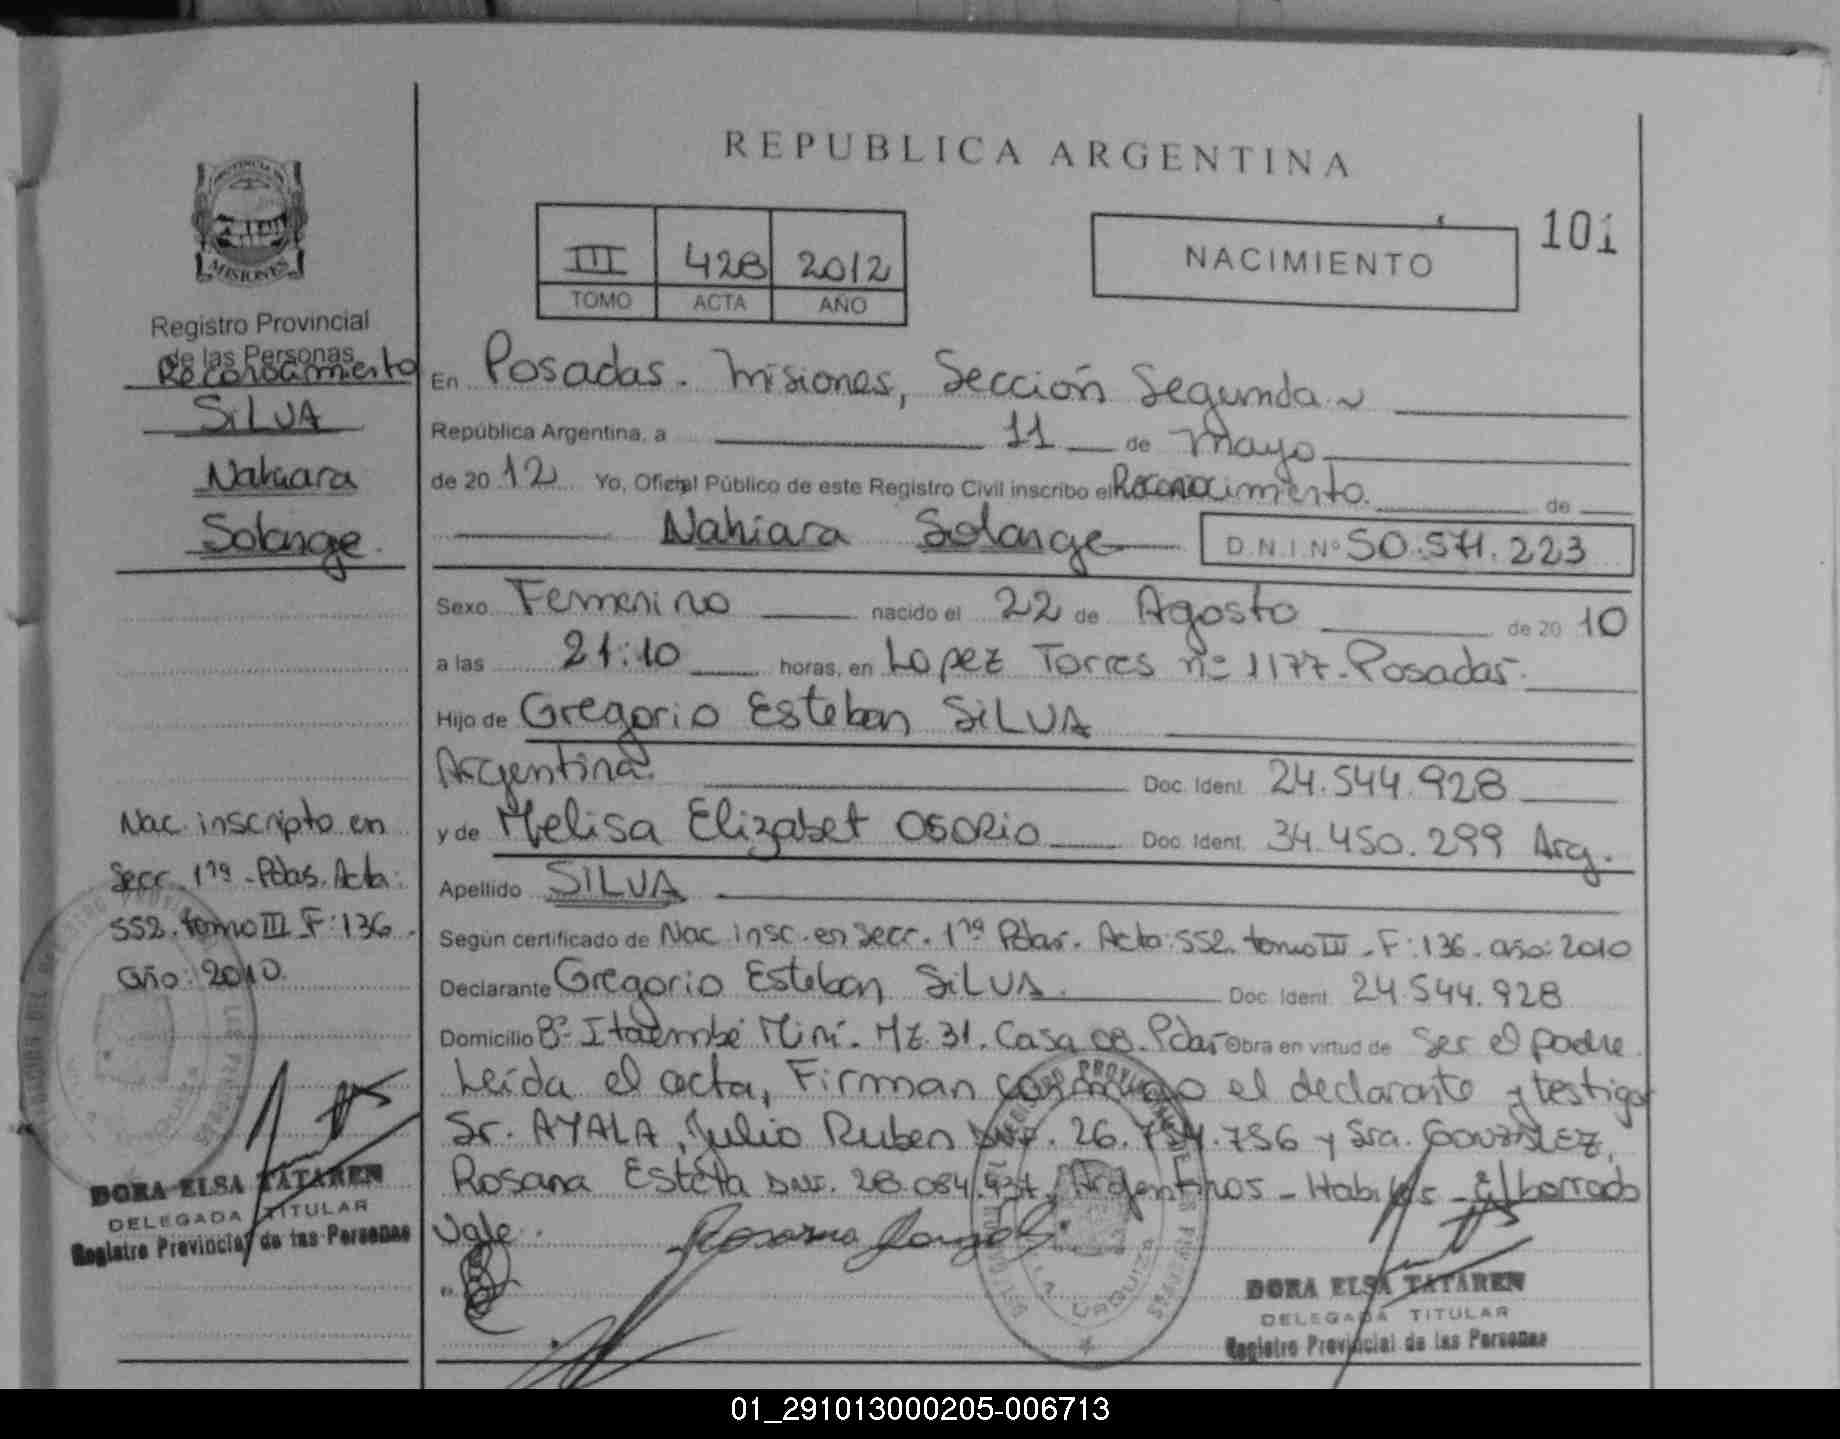 REPUBLICA ARGENTINA
III 428 2012
TOMO ACTA AÑO
NACIMIENTO
101
PROVINCIA DE
MISIONES
Registro Provincial
de las Personas
Reconocimiento
SILVA
Nahiara
Solange.
Nac. inscripto en
Secc. 1ra - Pdas. Acta:
552. tomo III F: 136.
año: 2010.
DORA ELSA TATAREN
DELEGADA TITULAR
Registro Provincial de las Personas
En Posadas. Misiones, Sección Segunda
República Argentina, a 11 de Mayo
de 2012 Yo, Oficial Público de este Registro Civil inscribo el Reconocimiento. de
Nahiara Solange D.N.I. Nº 50.571.223
Sexo Femenino nacido el 22 de Agosto de 2010
a las 21:10 horas, en Lopez Torres nº 1177 - Posadas.
Hijo de Gregorio Esteban SILVA
Argentina. Doc. Ident. 24.544.928
y de Melisa Elizabet OSORIO Doc. Ident. 34.450.299 Arg.
Apellido SILVA
Según certificado de Nac. insc. en secc. 1ra Pdas. Acta: 552. tomo III - F: 136. año: 2010
Declarante Gregorio Esteban SILVA. Doc. Ident. 24.544.928
Domicilio Bº Itaembé Miní. Mz. 31. Casa 08. Pdas Obra en virtud de ser el padre.
Leída el acta, Firman conmigo el declarante y testigos
Sr. AYALA, Julio Ruben DNI. 26. .756 y Sra. GONZALEZ,
Rosana Estela DNI. 28.084.937. Argentinos - Habiles - E/borrado
Vale.
DORA ELSA TATAREN
DELEGADA TITULAR
Registro Provincial de las Personas
01_291013000205-006713